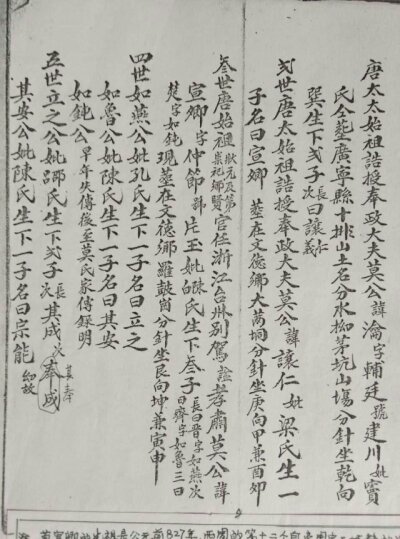 唐太太始祖誥授奉政大夫莫公諱瀹字輔廷號建川妣竇
氏仝塟廣寧縣十排山土名分水坳茅坑山塲分針坐乾向
巽生下弍子長曰讓仁次曰讓義
弍世唐太始祖誥授奉政大夫莫公諱讓仁妣梁氏生一
子名曰宣卿塟在文德鄉大芮垌分針坐庚向甲兼酉卯
叁世唐始祖狀元及第崇祀鄉賢官任浙江台州別駕諡孝肅莫公諱
宣卿字仲節號片玉妣陳氏生下叁子長曰晋字如燕次曰齊字如魯三曰
楚字如鈍現塟在文德鄉羅鼓崗分針坐艮向坤兼寅申
四世如燕公妣孔氏生下一子名曰立之
如魯公妣陳氏生下一子名曰其安
如鈍公早年失傳後至莫氏家傳錄明
五世立之公妣邵氏生下弍子長其成次奉成
其安公妣陳氏生下一子名曰宗能幼故
其奉